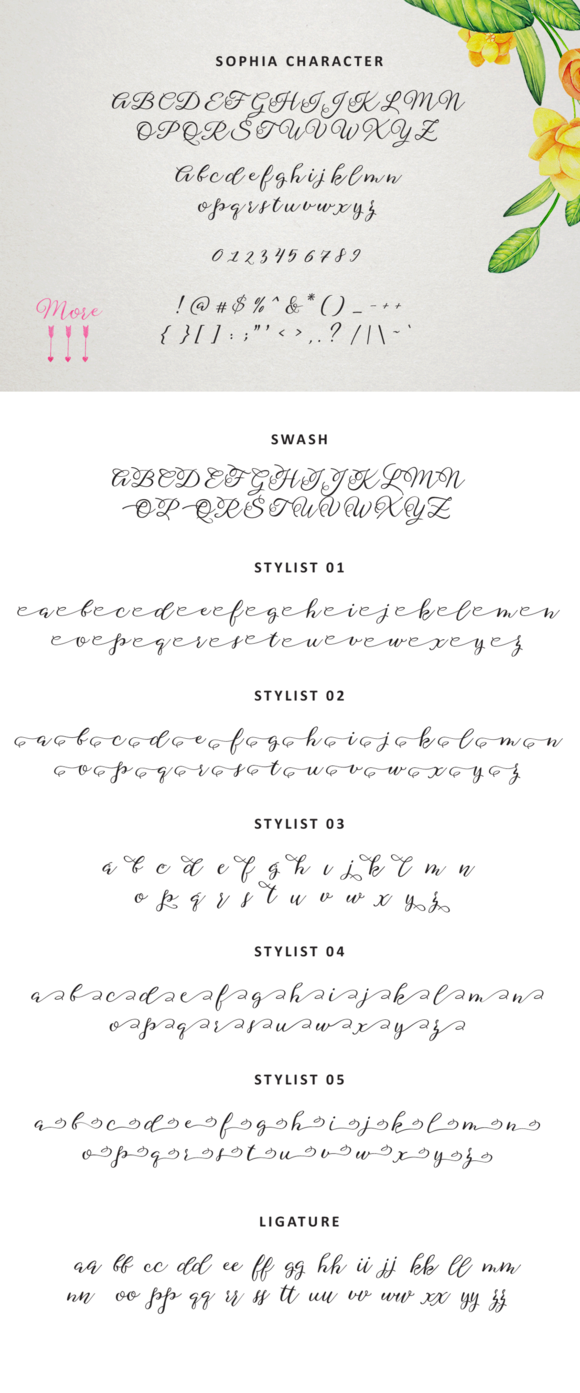 SOPHIA CHARACTER
A B C D E F G H I J K L M N
O P Q R S T U V W X Y Z
a b c d e f g h i j k l m n
o p q r s t u v w x y z
0 1 2 3 4 5 6 7 8 9
More
! @ # $ % ^ & * ( ) _ - + +
{ } [ ] : ; " ' < > , . ? / | \ ~ `
SWASH
A B C D E F G H I J K L M N
O P Q R S T U V W X Y Z
STYLIST 01
e a e b e c e d e e e f e g e h e i e j e k e l e m e n
e o e p e q e r e s e t e u e v e w e x e y e z
STYLIST 02
a b c d e f g h i j k l m n
o p q r s t u v w x y z
STYLIST 03
a b c d e f g h i j k l m n
o p q r s t u v w x y z
STYLIST 04
a a b a c a d a e a f a g a h a i a j a k a l a m a n a
o a p a q a r a s a u a w a x a y a z a
STYLIST 05
a b c d e f g h i j k l m n
o p q r s t u v w x y z
LIGATURE
aa bb cc dd ee ff gg hh ii jj kk ll mm
nn oo pp qq rr ss tt uu vv ww xx yy zz